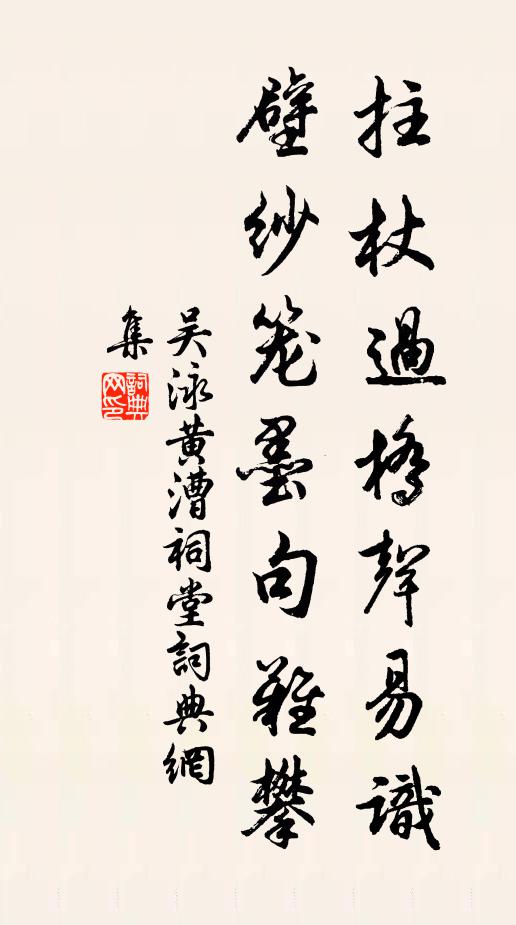 拄杖過橋聲易識
壁紗笼墨句難攀
吴泳黄漕祠堂詞典網
集
詞典網印